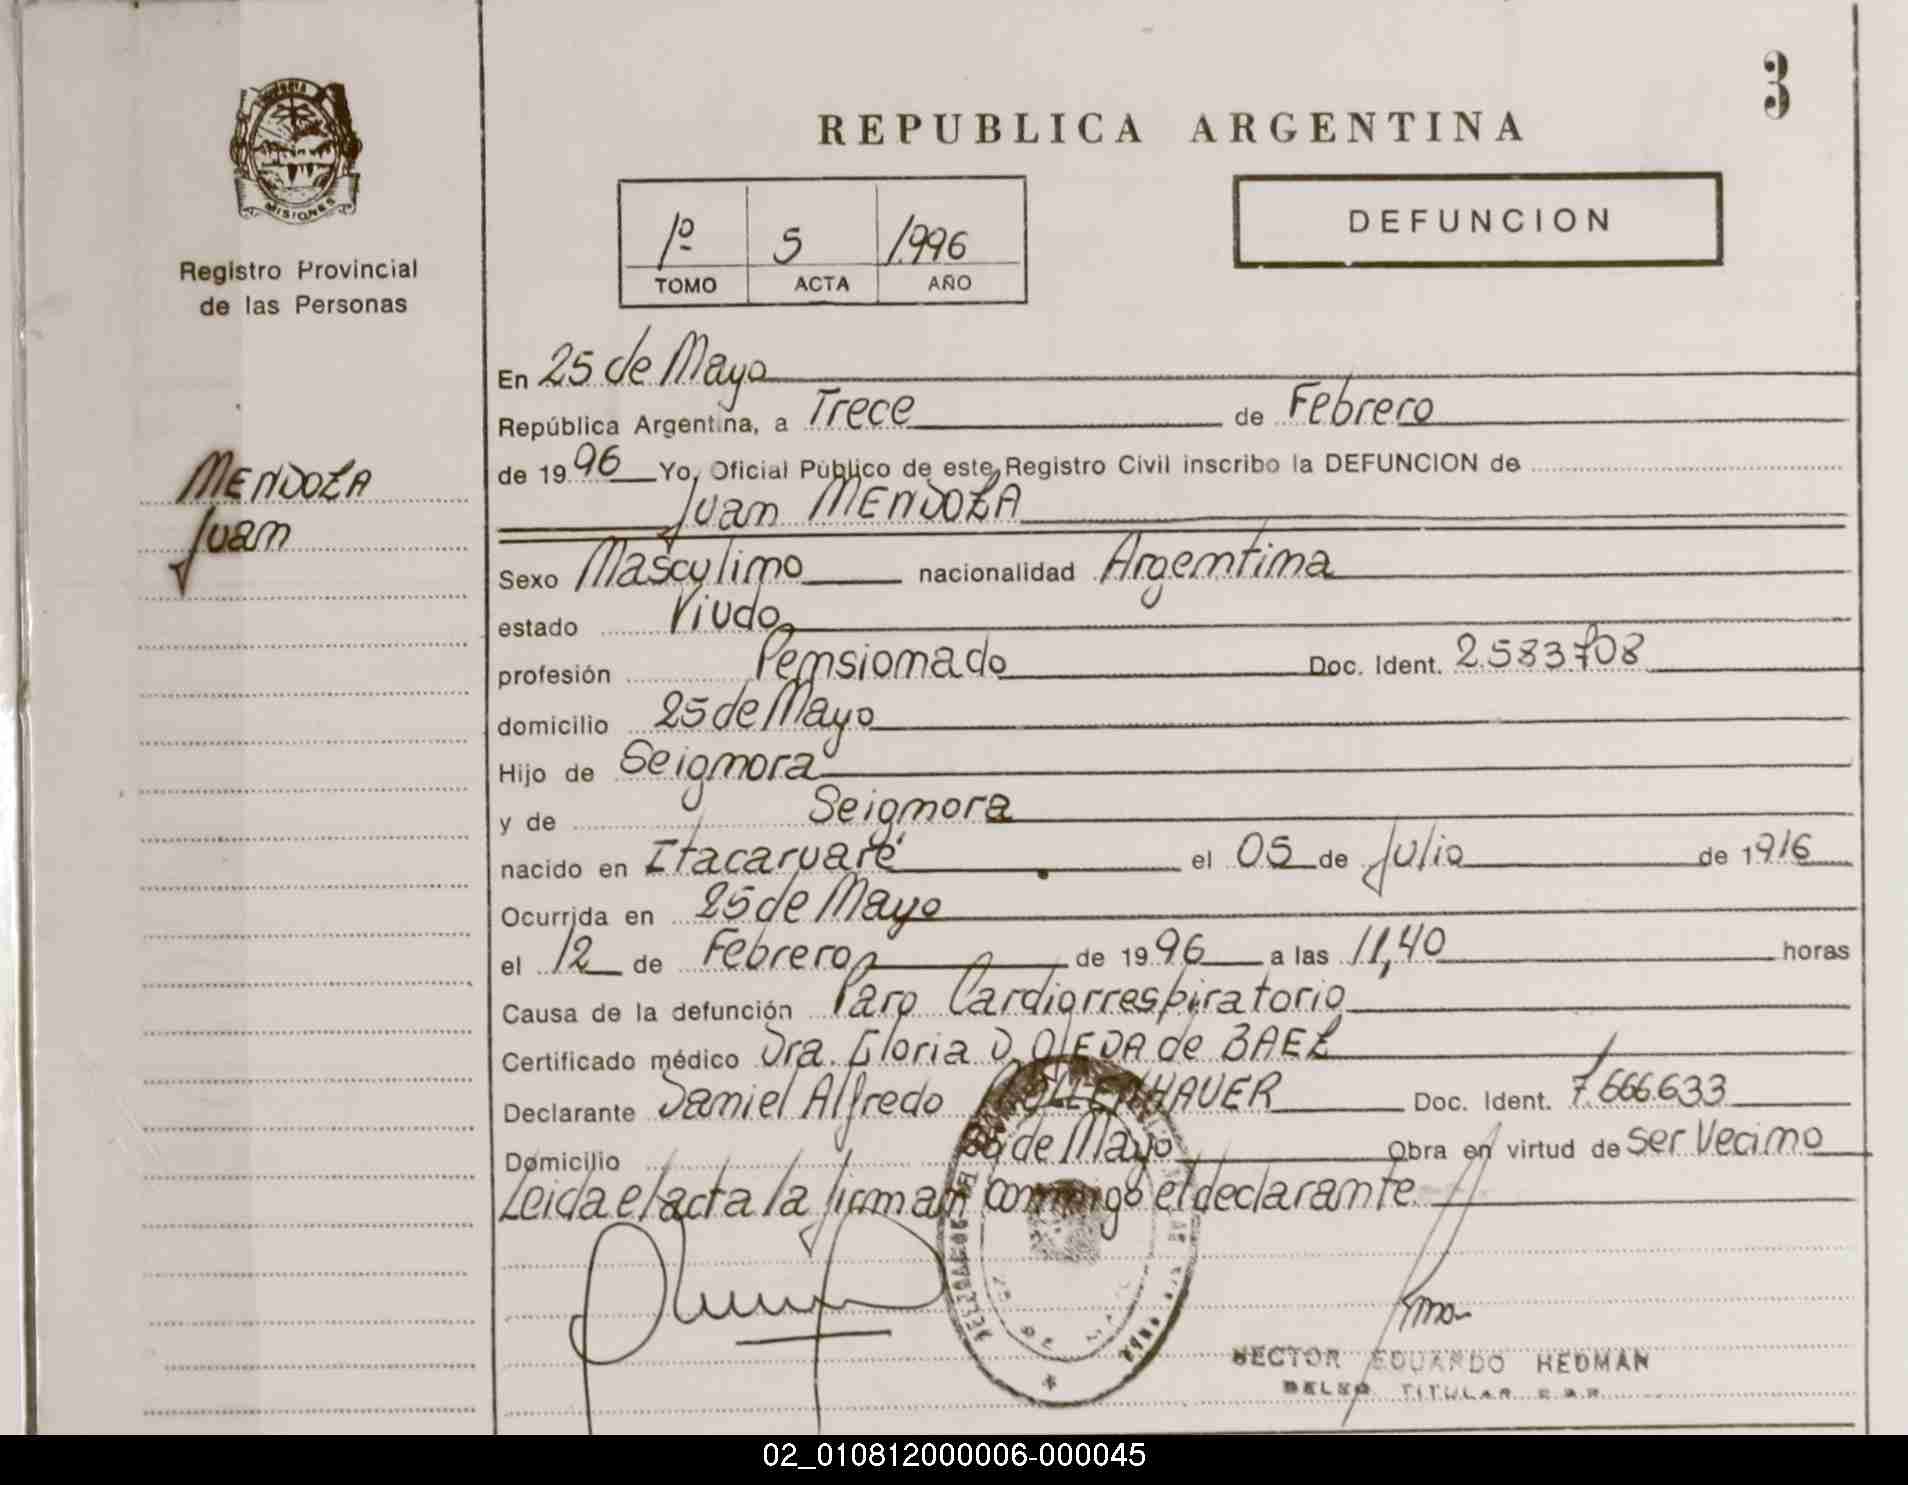 3
REPUBLICA ARGENTINA
MISIONES
Registro Provincial
de las Personas
1º 5 1.996
TOMO ACTA AÑO
DEFUNCION
MENDOZA
Juan
En 25 de Mayo
República Argentina, a Trece de Febrero
de 1996 Yo, Oficial Público de este Registro Civil inscribo la DEFUNCION de
Juan MENDOZA
Sexo Masculino nacionalidad Argentina
estado Viudo
profesión Pensionado Doc. Ident. 2.583.708
domicilio 25 de Mayo
Hijo de Seignora
y de Seignora
nacido en Itacaruaré el 05 de Julio de 1916
Ocurrida en 25 de Mayo
el 12 de Febrero de 1996 a las 11,40 horas
Causa de la defunción Paro Cardiorrespiratorio
Certificado médico Dra. Gloria D. OJEDA de BAEZ
Declarante Daniel Alfredo Doc. Ident. 7.666.633
Domicilio de Mayo Obra en virtud de ser Vecino
Leida el acta la firman conmigo el declarante
HECTOR EDUARDO HEDMAN
TITULAR
02_010812000006-000045